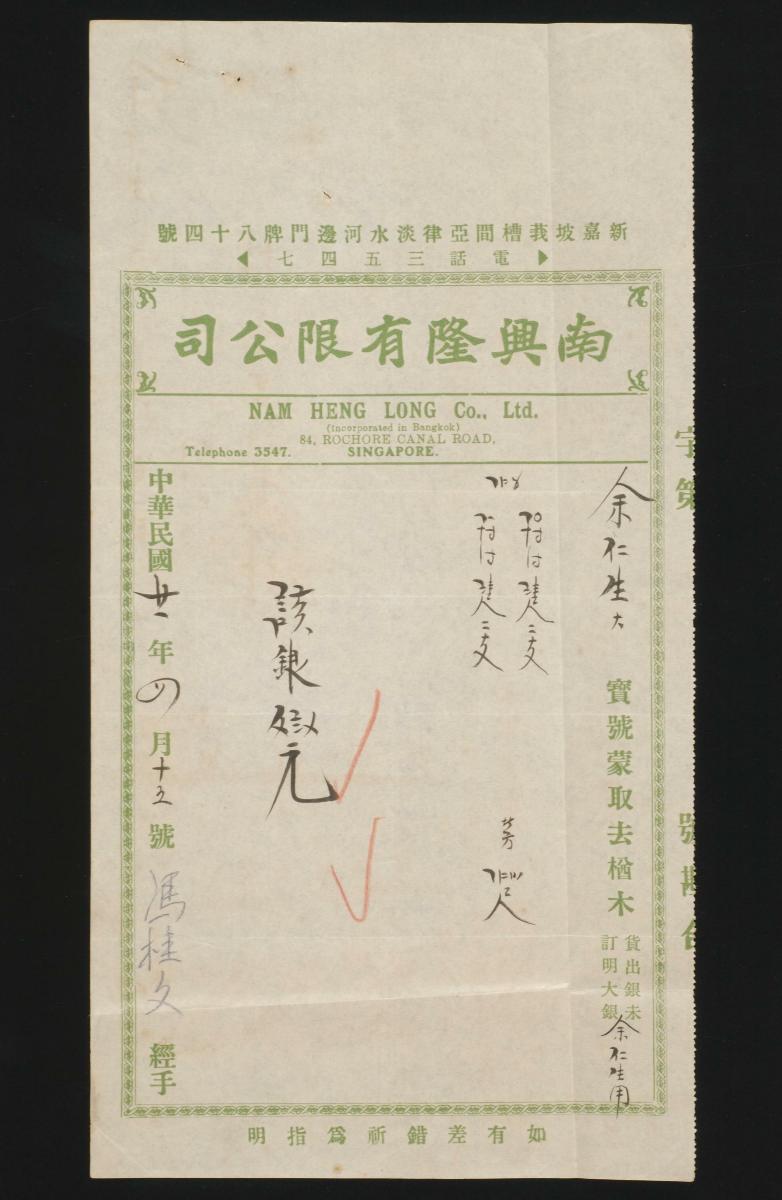 新嘉坡莪槽間亞律淡水河邊門牌八十四號
電話三五四七
南興隆有限公司
NAM HENG LONG Co., Ltd.
(Incorporated in Bangkok)
84, ROCHORE CANAL ROAD,
Telephone 3547. SINGAPORE.
字第
號
余仁生大
寶號蒙取去楢木
貨出銀未
訂明大銀
余仁生用
該銀
元
中華民國廿一年四月十五號
馮桂文
經手
如有差錯祈爲指明